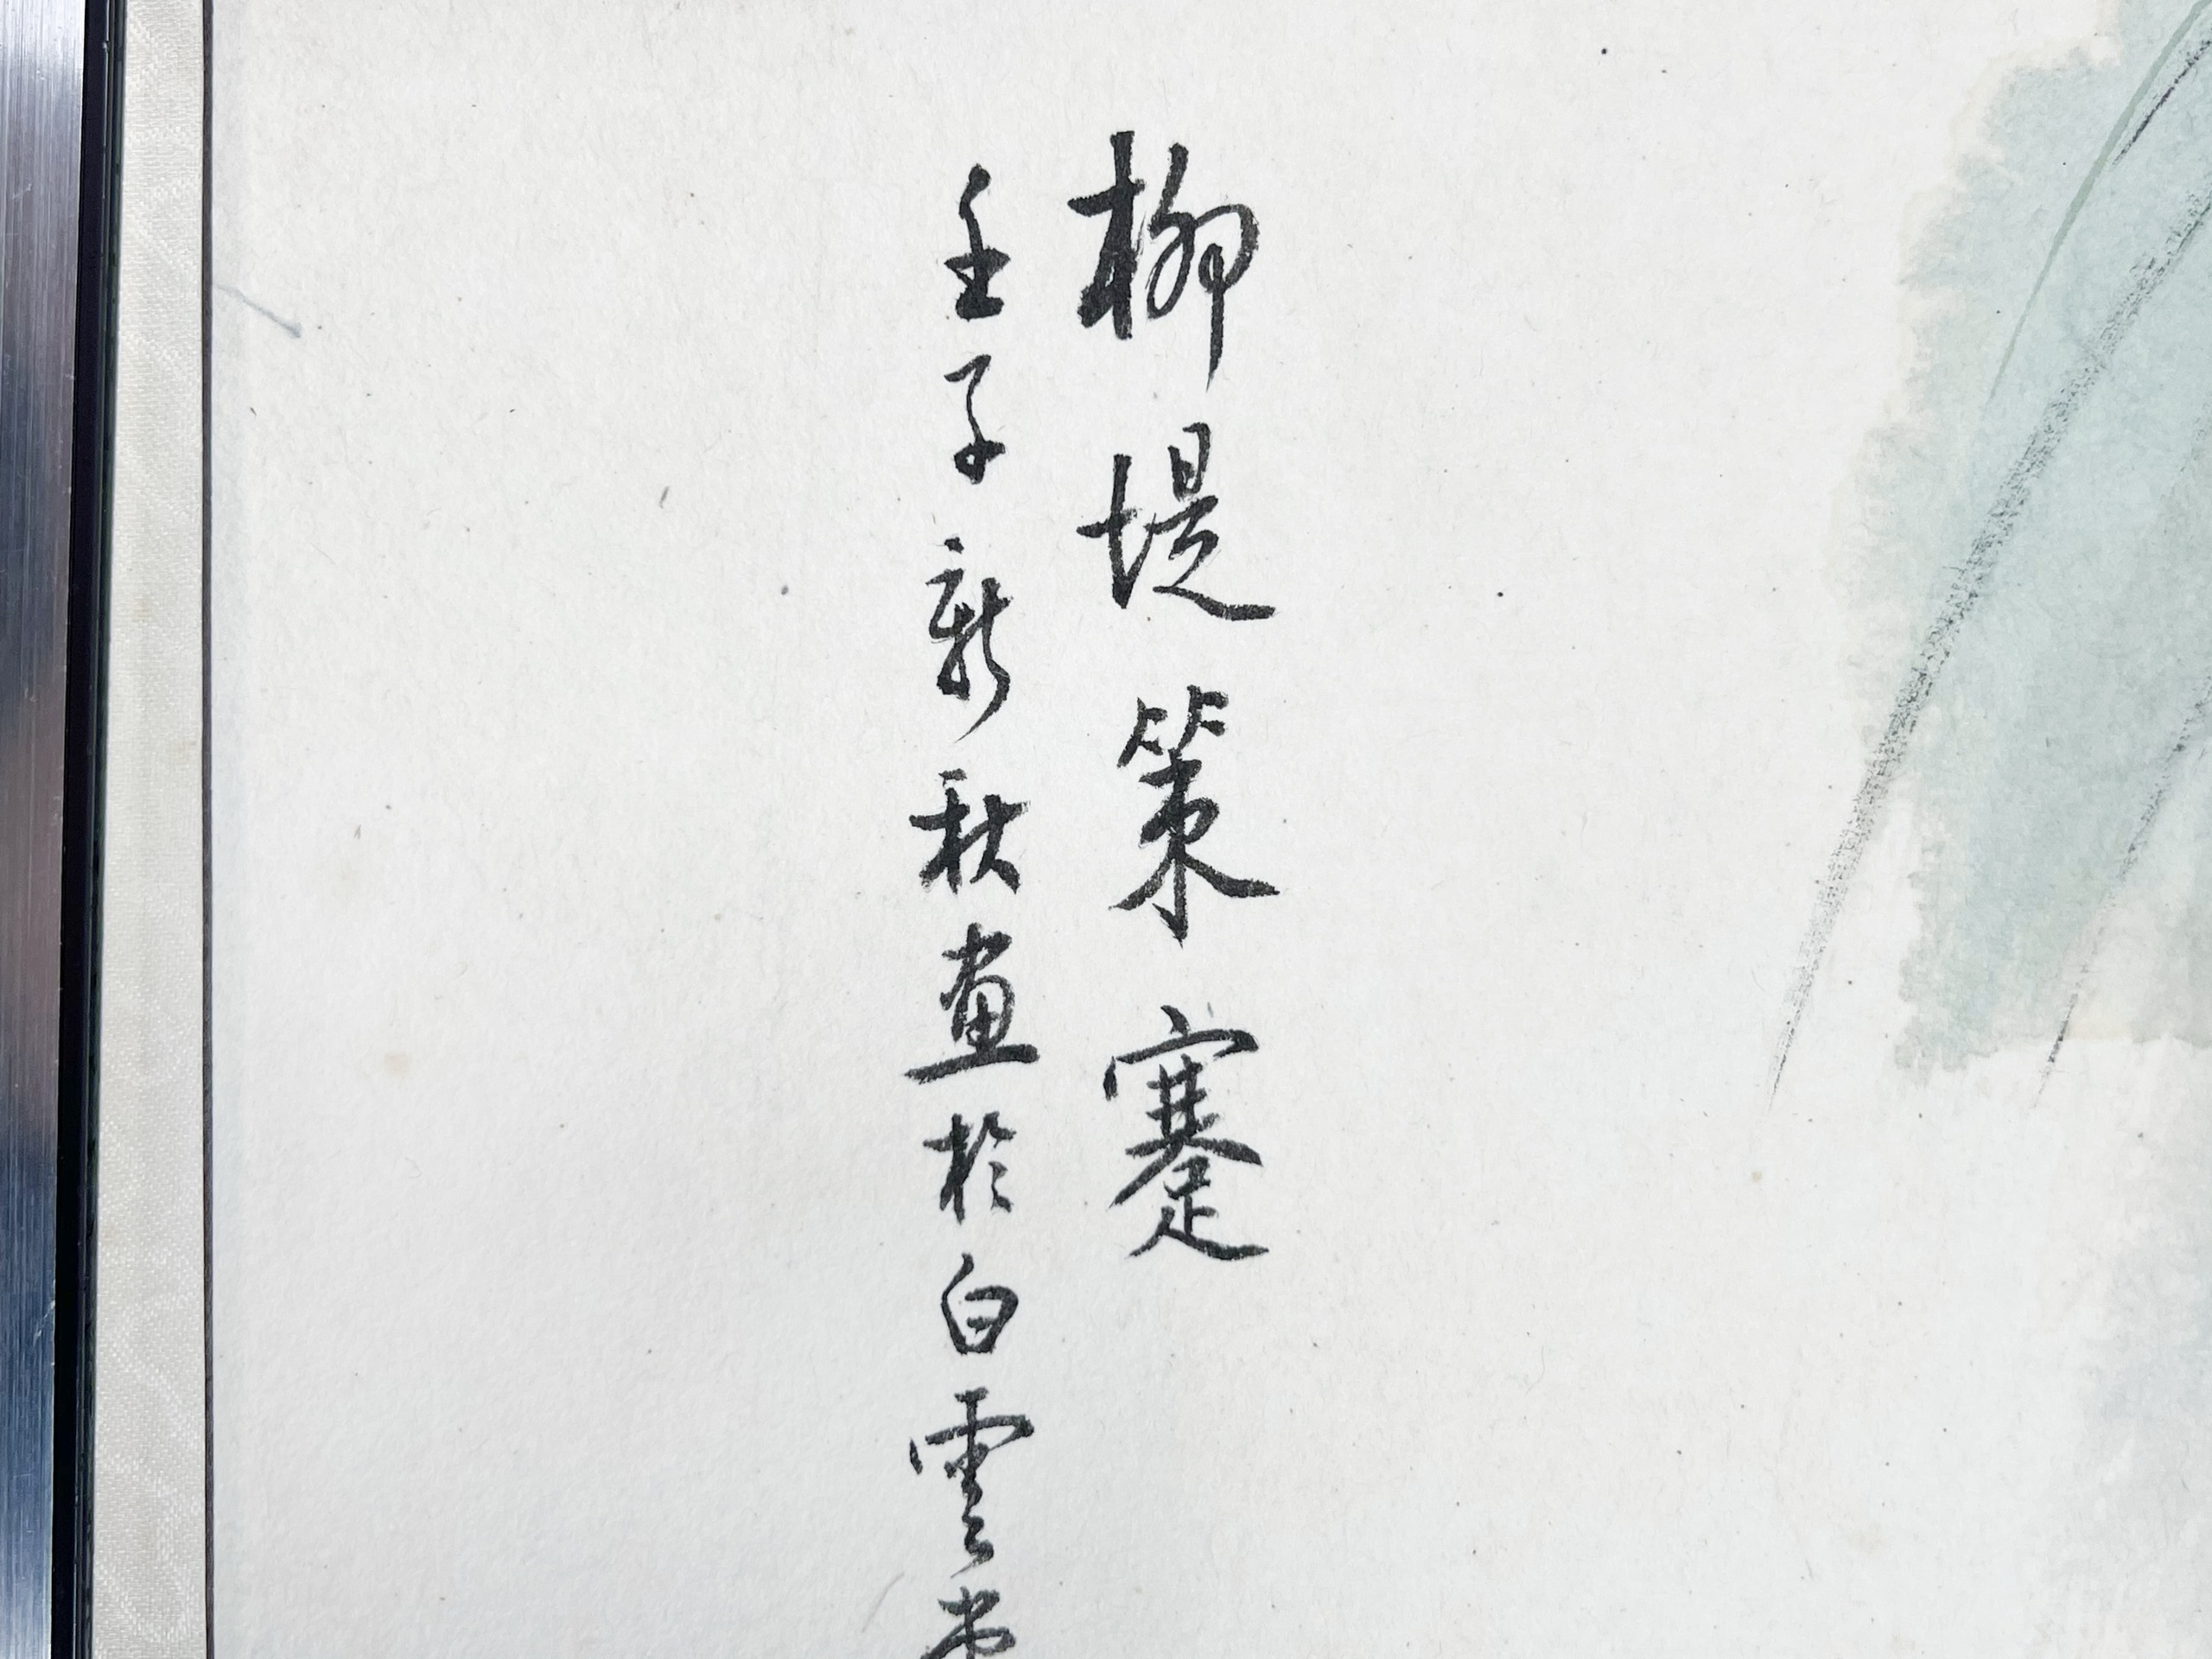 柳堤策蹇
壬子新秋畫於白雲